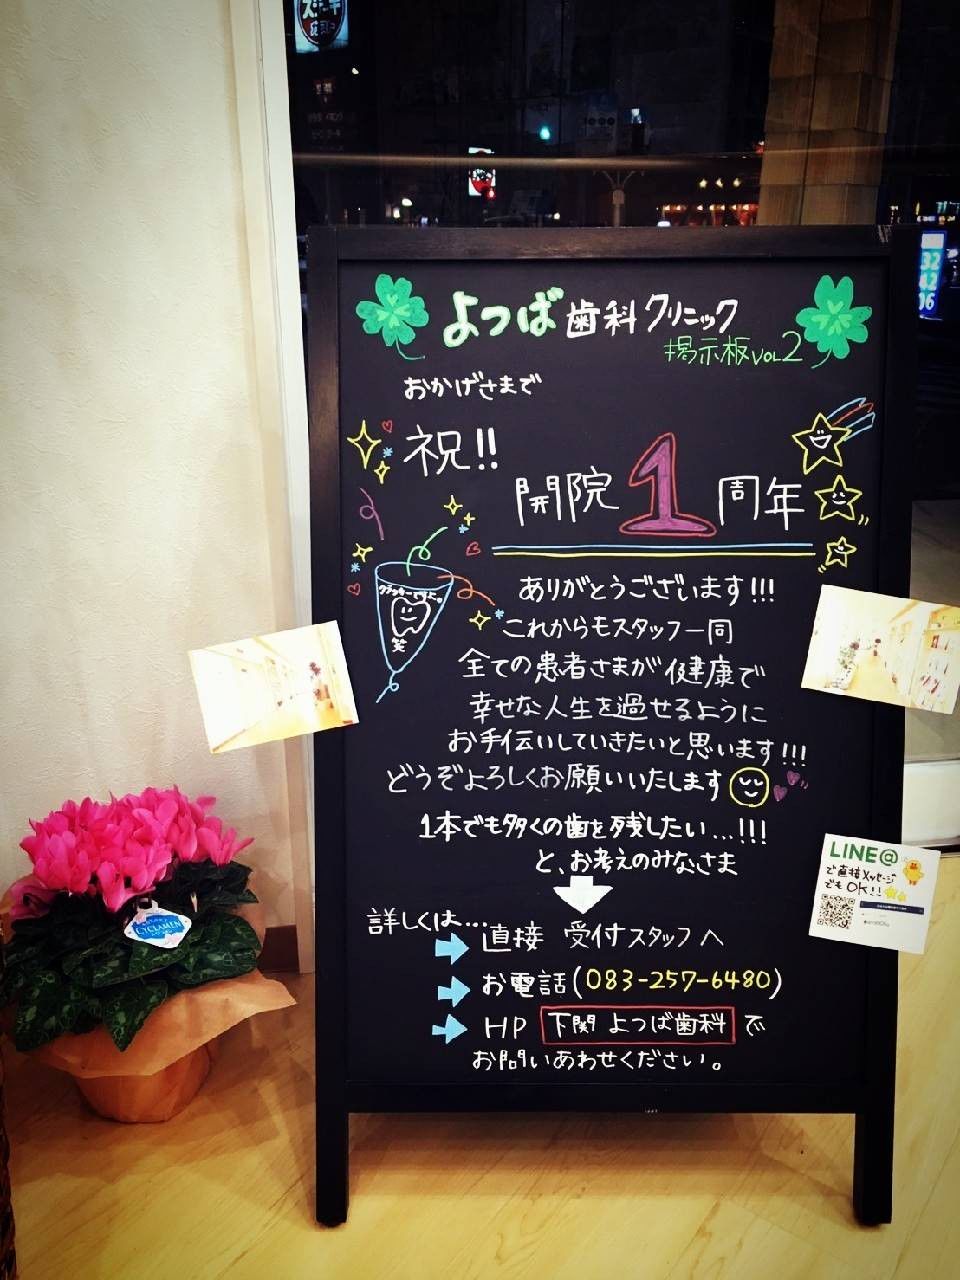 よつば歯科クリニック
掲示板VOL2
おかげさまで
祝!!
開院1周年
クラッカーですよ。
笑
ありがとうございます!!!
これからもスタッフ一同
全ての患者さまが健康で
幸せな人生を過せるように
お手伝いしていきたいと思います!!!
どうぞよろしくお願いいたします
1本でも多くの歯を残したい...!!!
と、お考えのみなさま
詳しくは...
直接 受付スタッフへ
お電話(083-257-6480)
HP 下関 よつば歯科 で
お問いあわせください。
LINE@
で直接メッセージ
でもOK!!
CYCLAMEN
32
42
06